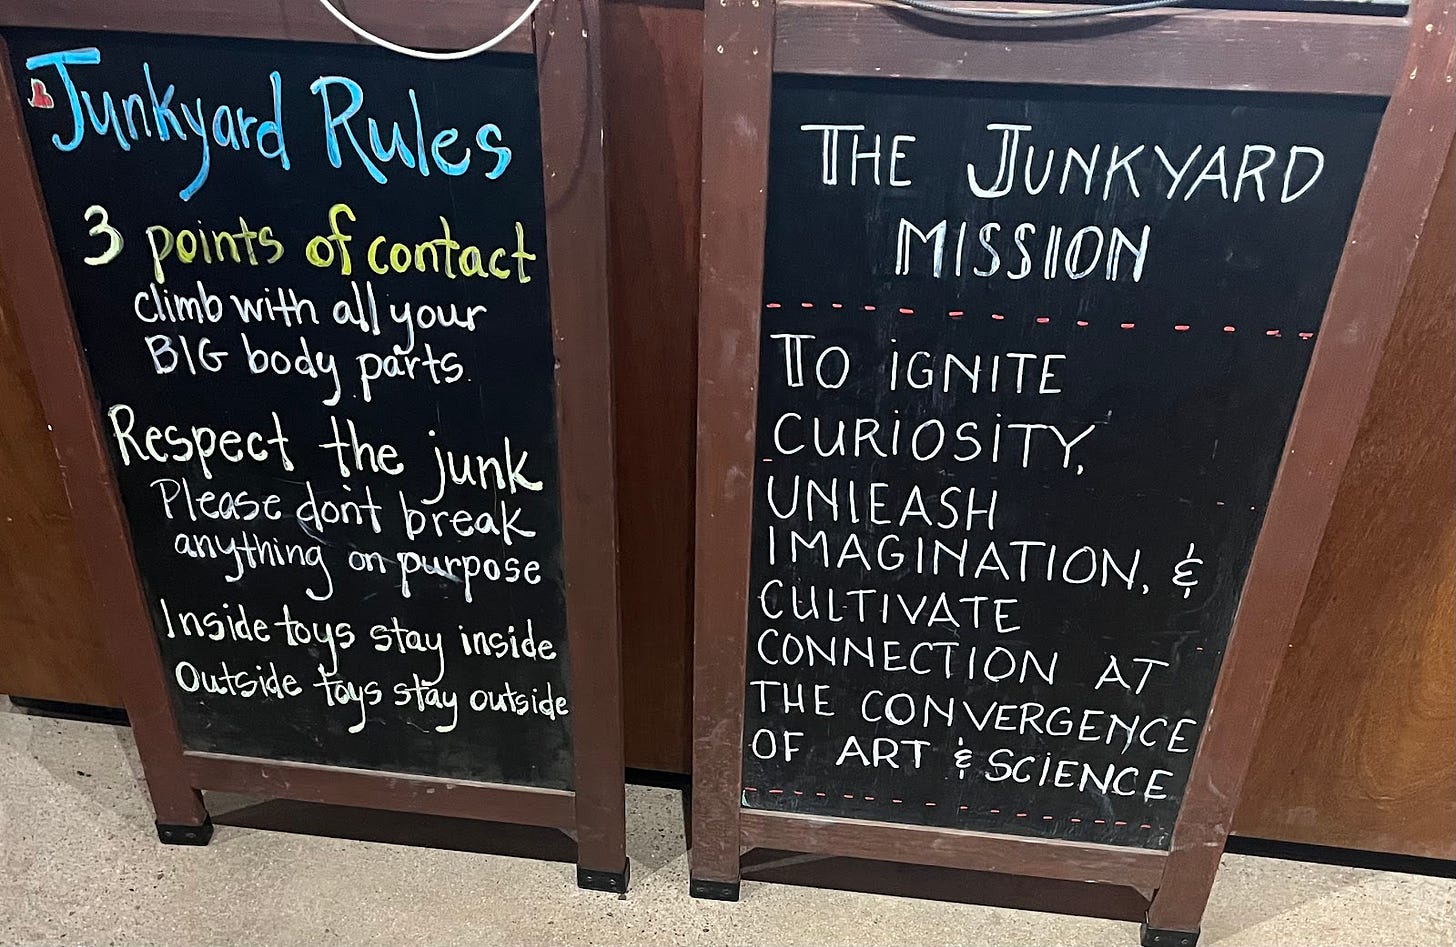 Junkyard Rules
3 points of contact
climb with all your
BIG body parts.
Respect the junk
Please don't break
anything on purpose
Inside toys stay inside
Outside toys stay outside
THE JUNKYARD
MISSION
TO iGNITE
CURiOSiTY,
UNLEASH
IMAGINATION, &
CULTIVATE
CONNECTION AT
THE CONVERGENCE
OF ART & SCIENCE